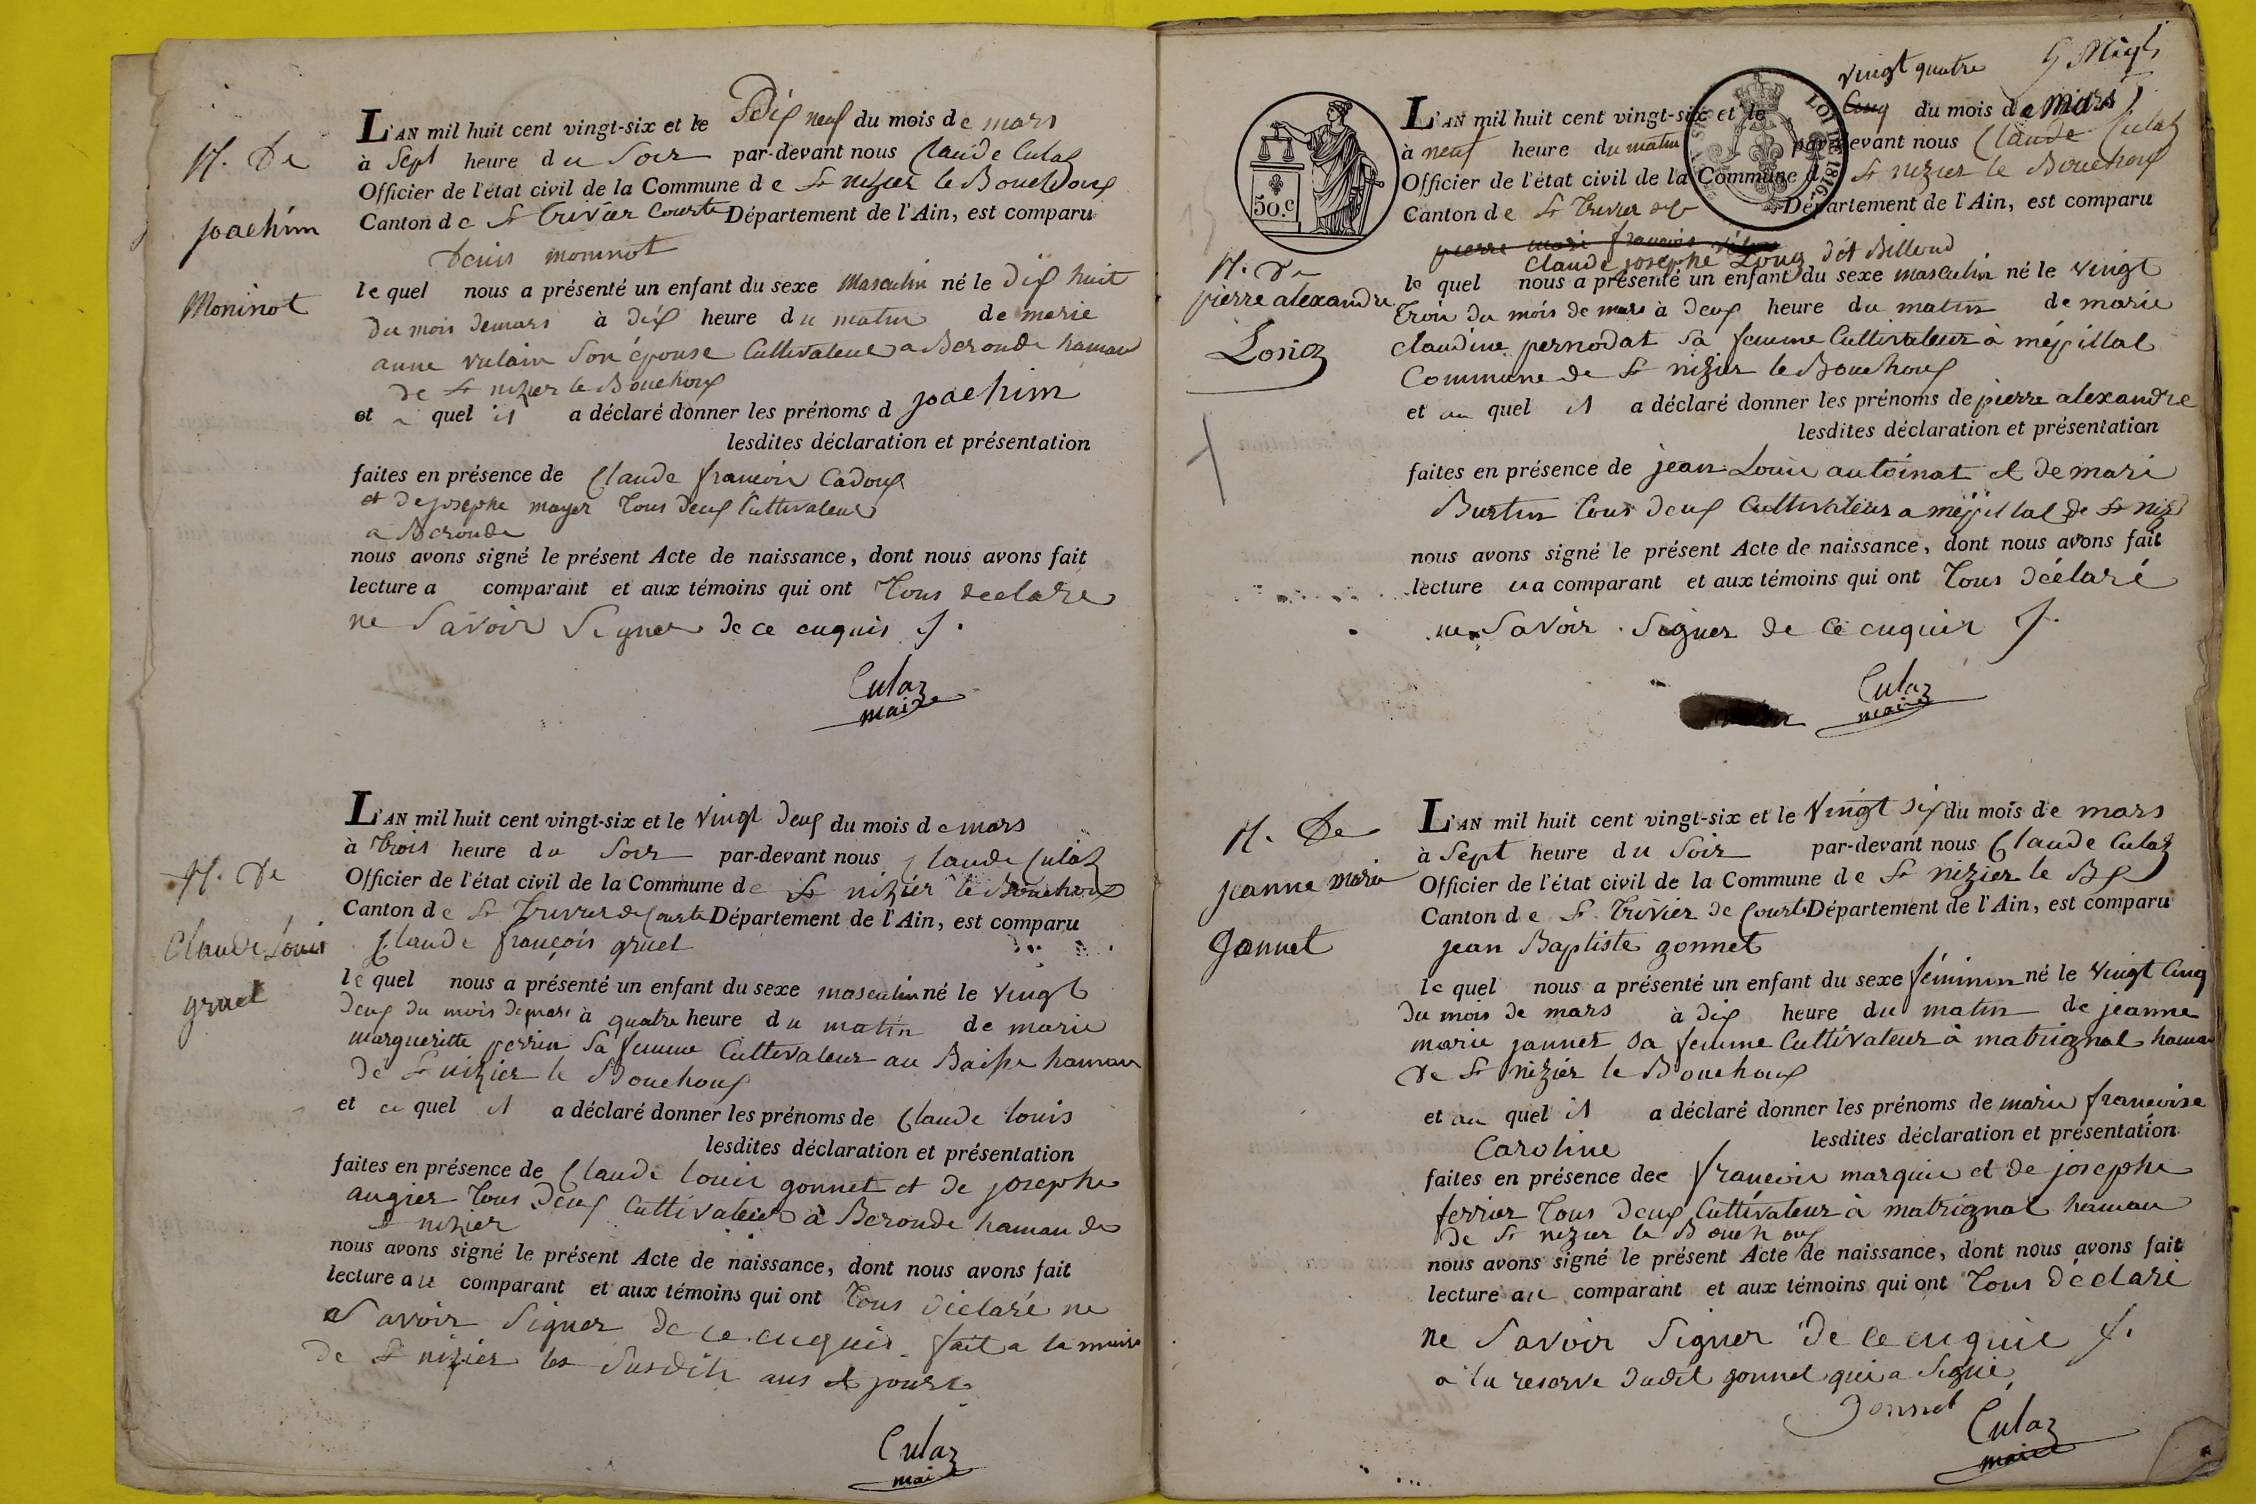 N. De
joachim
Moninot
L'AN mil huit cent vingt-six et le Dix neuf du mois de mars
à Sept heure du Soir par-devant nous Claude Culaz
Officier de l'état civil de la Commune de St nizier le Bouchoux
Canton de St trivier Courte Département de l'Ain, est comparu
Denis moninot
lequel nous a présenté un enfant du sexe Masculin né le Dix huit
Du mois demars à dix heure du matin de marie
anne vulain Son épouse Cultivateur a Beronde hamau
de St nizier le Bouchoux
et a quel il a déclaré donner les prénoms d joachim
lesdites déclaration et présentation
faites en présence de Claude francois Cadoux
et De josephe mayer Tous Deux Cultivateur
a Beronde
nous avons signé le présent Acte de naissance, dont nous avons fait
lecture a comparant et aux témoins qui ont Tous declaré
ne Savoir Signer de ce enquis ./.
Culaz
maire
N. De
Claude Louis
gruel
L'AN mil huit cent vingt-six et le Vingt Deux du mois de mars
à Trois heure du Soir par-devant nous Claude Culaz
Officier de l'état civil de la Commune de St nizier le Bouchoux
Canton de St Trivier de Courte Département de l'Ain, est comparu
Claude françois gruel
lequel nous a présenté un enfant du sexe masculin né le Vingt
Deux du mois de mars à quatre heure du matin de marie
margueritte perrin Sa femme Cultivateur au Baisse hamau
De St nizier le Bouchoux
et au quel il a déclaré donner les prénoms de Claude louis
lesdites déclaration et présentation
faites en présence de Claude louis gonnet et de josephe
augier Tous Deux Cultivateur à Beronde hamau de
St nizier
nous avons signé le présent Acte de naissance, dont nous avons fait
lecture au comparant et aux témoins qui ont Tous déclaré ne
Savoir Signer De ce enquis. fait a la mairie
de St nizier les Susdits ans et jours
Culaz
maire
vingt quatre
L'AN mil huit cent vingt-six et le Cinq du mois de Mars
à neuf heure du matin par-devant nous Claude Culaz
Officier de l'état civil de la Commune d St nizier le Bouchoux
Canton de St Trivier Département de l'Ain, est comparu
LOI DE 1816.
50.c
pierre mari francois
Claude josephe Long dit Billoud
N. De
pierre alexandre
Long
lequel nous a présenté un enfant du sexe masculin né le Vingt
Trois du mois de mars à Deux heure du matin de marie
claudine pernodat Sa femme Cultivateur à mépillat
Commune de St nizier le Bouchoux
et au quel il a déclaré donner les prénoms de pierre alexandre
lesdites déclaration et présentation
faites en présence de jean Louis antoinat et de mari
Burtin Tous Deux Cultivateur a mépillat de St niz
nous avons signé le présent Acte de naissance, dont nous avons fait
lecture au comparant et aux témoins qui ont Tous Déclaré
ne Savoir Signer de Ce enquis ./.
Culaz
maire
N. De
jeanne marie
Gonnet
L'AN mil huit cent vingt-six et le Vingt Six du mois de mars
à Sept heure du Soir par-devant nous Claude Culaz
Officier de l'état civil de la Commune de St nizier le Bx
Canton de St Trivier de Courte Département de l'Ain, est comparu
jean Baptiste gonnet
lequel nous a présenté un enfant du sexe féminin né le Vingt Cinq
Du mois de mars à dix heure du matin de jeanne
marie jannet Sa femme Cultivateur à matrignat hamau
De St nizier le Bouchoux
et au quel il a déclaré donner les prénoms de marie françoise
Caroline lesdites déclaration et présentation
faites en présence dee francois marquis et de josephe
ferrier Tous Deux Cultivateur à matrignat hamau
De St nizier le Bouchoux
nous avons signé le présent Acte de naissance, dont nous avons fait
lecture au comparant et aux témoins qui ont Tous Déclaré
ne Savoir Signer De ce enquis ./.
à la reserve Dudit gonnet qui a Signé
Gonnet
Culaz
maire